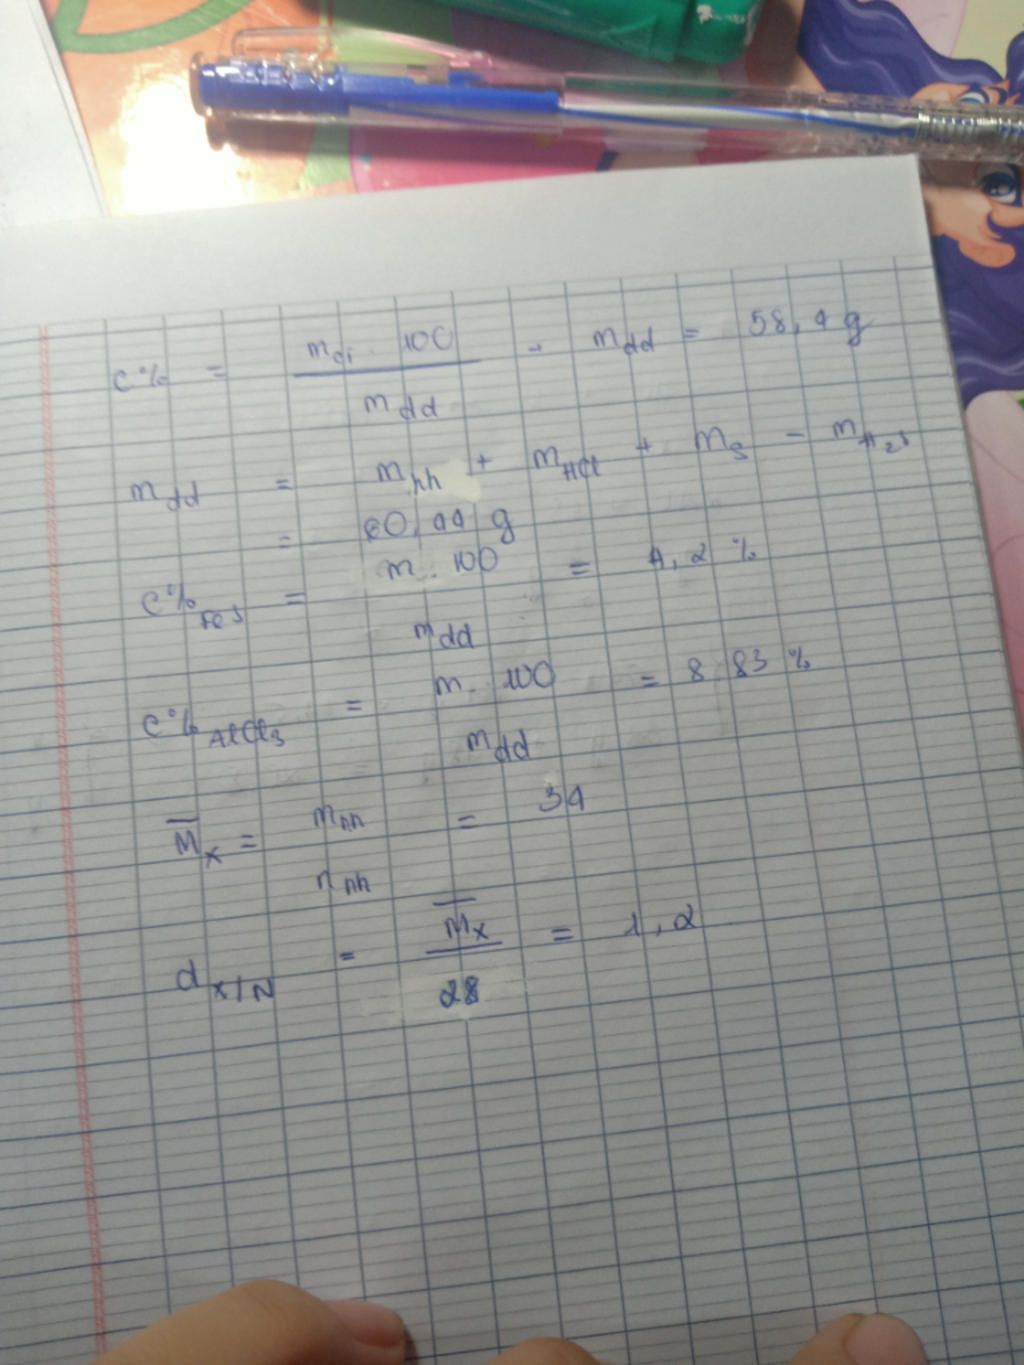 C% = mct . 100 / mdd → mdd = 58,4 g
mdd = mhh + mHCl + mS - mH2S
= 60,44 g
C% FeS = m . 100 / mdd = 4,2 %
C% AlCl3 = m . 100 / mdd = 8,83 %
M̅x = mhh / nhh = 34
d x/N = M̅x / 28 = 1,2